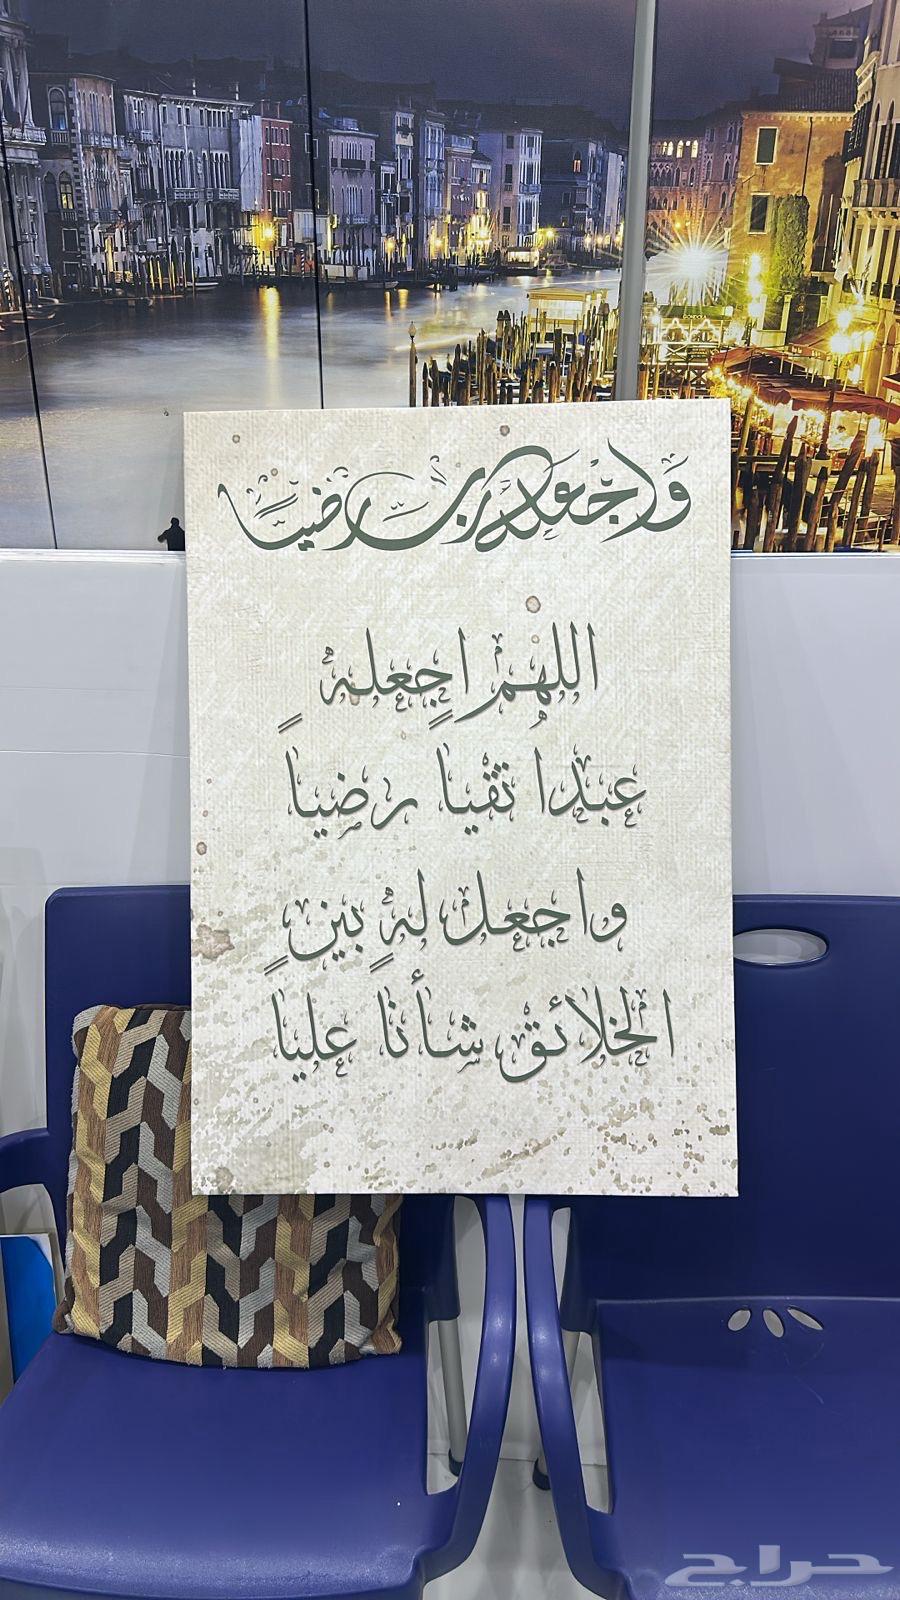 واجعله رب رضيا
اللهم اجعله
عبدا تقيا رضياً
واجعل له بين
الخلائق شأنا علياً
حراج